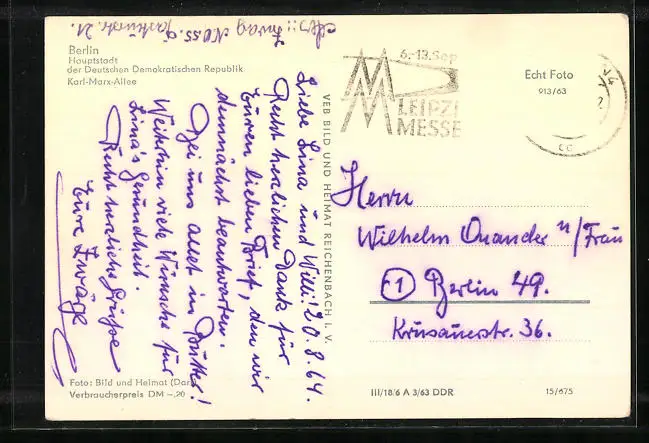 Abs.: Zwarg
Berlin
Hauptstadt
der Deutschen Demokratischen Republik
Karl-Marx-Allee
Liebe Lina und Willi! 20.8.64.
Recht herzlichen Dank für
Euren lieben Brief, den wir
demnächst beantworten.
Bei uns alles in Butter!
Weiterhin viele Wünsche für
Lina's Gesundheit.
Recht herzliche Grüße
Eure Zwarge
Foto: Bild und Heimat
Verbraucherpreis DM –,20
VEB BILD UND HEIMAT REICHENBACH I. V.
6.-13.Sep
LEIPZI
MESSE
Echt Foto
913/63
Herrn
Wilhelm Quander u/Frau
1 Berlin 49.
Krusauerstr. 36.
III/18/6 A 3/63 DDR
15/675